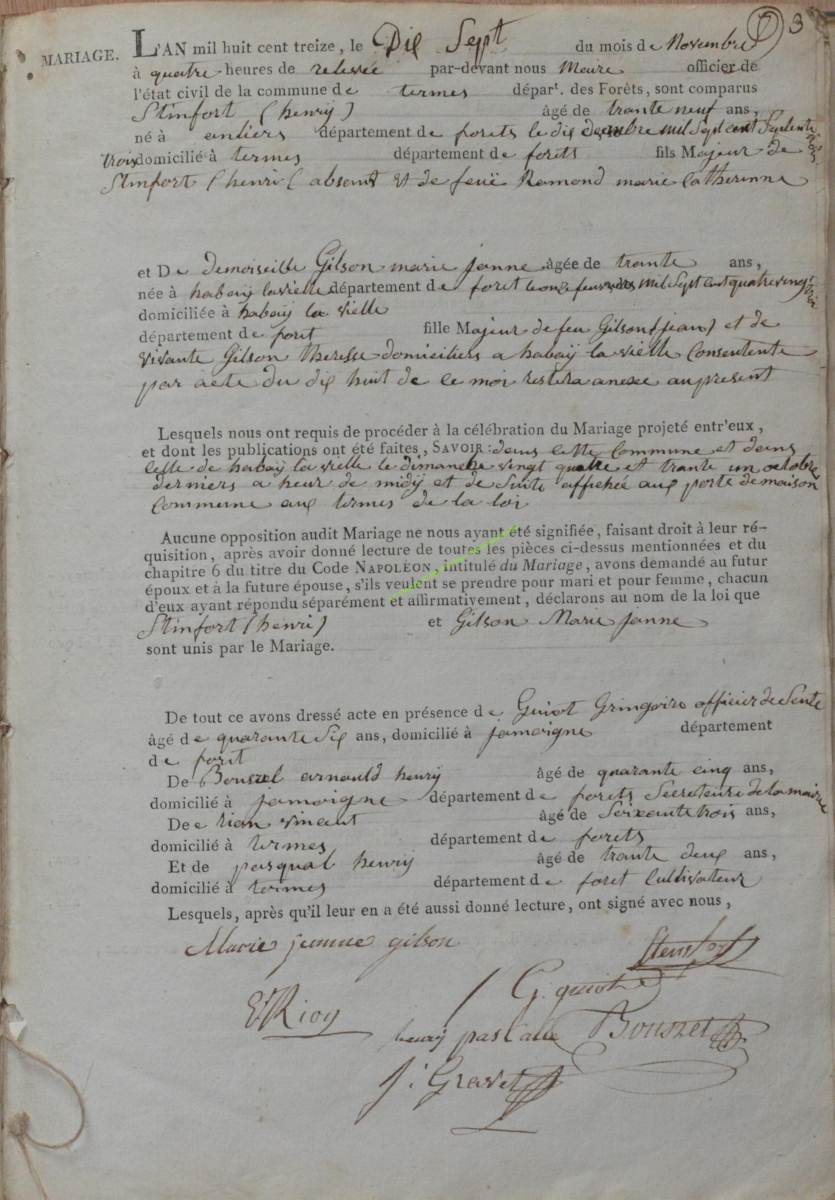 7 3
MARIAGE. L'AN mil huit cent treize, le Dix Sept du mois de Novembre
à quatre heures de relevée par-devant nous Maire officier de
l'état civil de la commune de termes départ. des Forêts, sont comparus
Stinfort (henrij) âgé de trante neuf ans,
né à anliers département de forets le dix decembre mil Sept cent Septente
trois domicilié à termes département de forets fils Majeur de
Stinfort (henri( absent et de feuë Ramond marie Catherinne
et De demoiselle Gilson marie janne âgée de trante ans,
née à habaÿ lavielle département de foret le onze mil Sept cent quatre vingt
domiciliée à habaÿ la vielle
département de foret fille Majeur de feu Gilson (jean) et de
vivante Gilson theresse domiciliers a habaÿ la vielle Consentente
par acte du dix huit de ce moi restera anexee au present
Lesquels nous ont requis de procéder à la célébration du Mariage projeté entr'eux,
et dont les publications ont été faites, SAVOIR : dans cette Commune et dans
celle de habaÿ la vielle le dimanche vingt quatre et trante un octobre
derniers a heur de midÿ et de Suite affichée aux porte de maison
Commune aux termes de la loi
Aucune opposition audit Mariage ne nous ayant été signifiée, faisant droit à leur ré-
quisition, après avoir donné lecture de toutes les pièces ci-dessus mentionnées et du
chapitre 6 du titre du Code NAPOLÉON, intitulé du Mariage, avons demandé au futur
époux et à la future épouse, s'ils veulent se prendre pour mari et pour femme, chacun
d'eux ayant répondu séparément et affirmativement, déclarons au nom de la loi que
Stinfort (henri) et Gilson Marie janne
sont unis par le Mariage.
De tout ce avons dressé acte en présence de Guiot Gringoire officier de Sente
âgé de quarante Six ans, domicilié à jamoigne département
de foret
De Bouszel arnauld henrij âgé de quarante cinq ans,
domicilié à jamoigne département de forets Secreteire de la mairie
De rion vincent âgé de Soixante trois ans,
domicilié à termes département de forets
Et de pasqual henrij âgé de trante deux ans,
domicilié à termes département de foret Cultivateur
Lesquels, après qu'il leur en a été aussi donné lecture, ont signé avec nous,
Marie jeanne gilson Steinfort
G. guiot
V Rion henrij pascalle Bouszel
j: Gravet